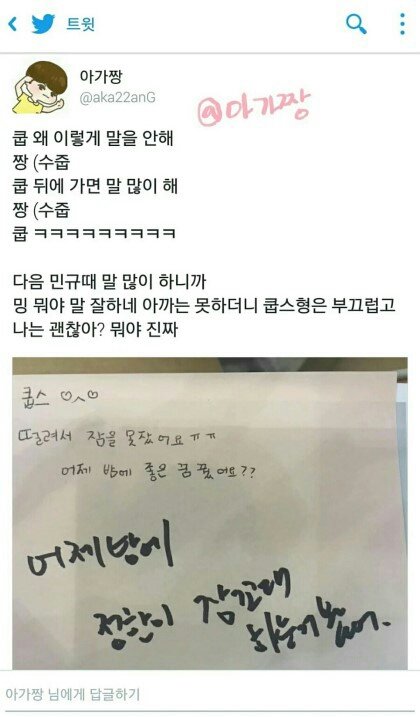 트윗
아가짱
@aka22anG
@아가짱
쿱 왜 이렇게 말을 안해
짱 (수줍
쿱 뒤에 가면 말 많이 해
짱 (수줍
쿱 ㅋㅋㅋㅋㅋㅋㅋㅋㅋ
다음 민규때 말 많이 하니까
밍 뭐야 말 잘하네 아까는 못하더니 쿱스형은 부끄럽고
나는 괜찮아? 뭐야 진짜
쿱스 ♡ㅅ♡
떨려서 잠을 못잤어요ㅠㅠ
어제 밤에 좋은 꿈 꿨어요??
어제 밤에
정한이 잠꼬대
아가짱 님에게 답글하기